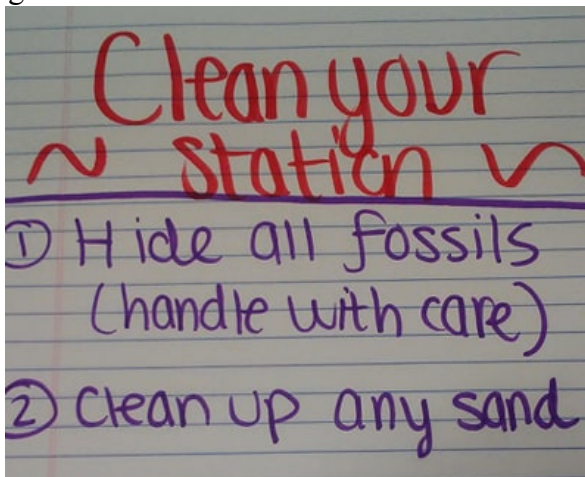 Clean your
~ station ~
① Hide all fossils
(handle with care)
② Clean up any sand